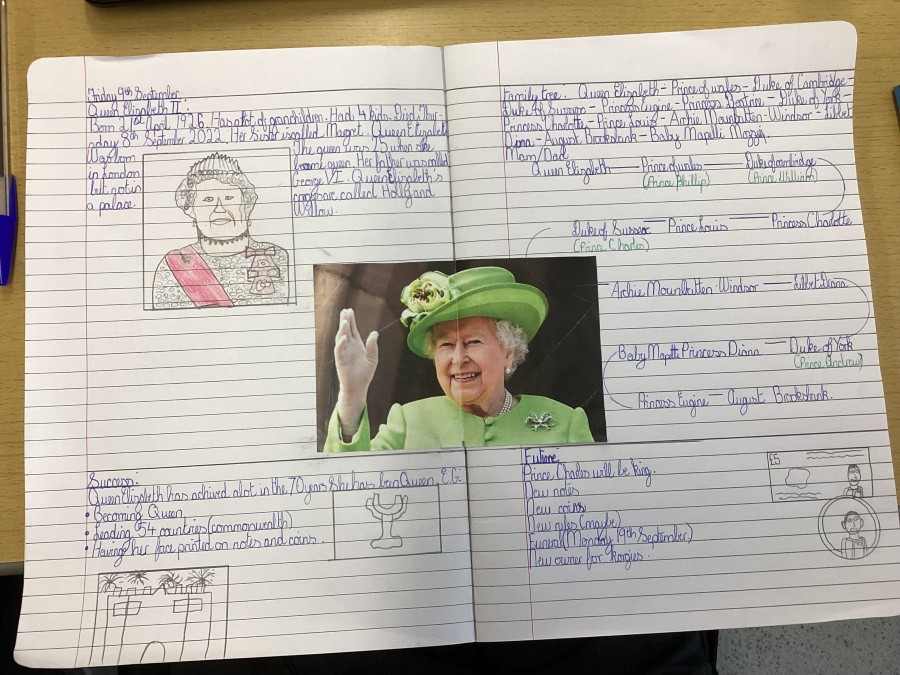 Friday 9th September
Queen Elizabeth II:
Born 21st April 1926. Has a lot of grandchildren. Had 4 kids. Died Thur-
sday 8th September 2022. Her Sister is called Magret. Queen Elizabeth
Was born
in London
but not in
a palace
The queen was 25 when she
became queen. Her father was called
George VI. Queen Elizabeth's
corgis are called Holly and
Willow.
Success:
Queen Elizabeth has achived alot in the 70 years she has been Queen, E.G:
• Becoming Queen
• Leading 54 countries (commonwealth)
• Having her face printed on notes and coins.
Family tree. Queen Elizabeth - Prince of wales - Duke of Cambridge -
Duke of Sussex - Princess Eugine - Princess Beatrice - Duke of York
Princess Charlotty - Prince Louis - Archie Mounbatten-Windsor - Lilibet
Diana - August Brooksbank - Baby Mapilli Mozzi.
Mam/Dad
Queen Elizabeth — Prince of wales — Duke of cambridge
(Prince Phillip) (Prince William)
Duke of Sussex — Prince Louis — Princess Charlotte
(Prince Charles)
Archie Mounbatten-Windsor — Lilibet Diana
Baby Mapilli Princess Diana — Duke of York
(Prince Andrew)
Princess Eugine — August Brooksbank.
Future
Prince Charles will be king.
New notes
New coins
New rules (maybe)
Funeral (Monday 19th September)
New owner for korgies.
£5